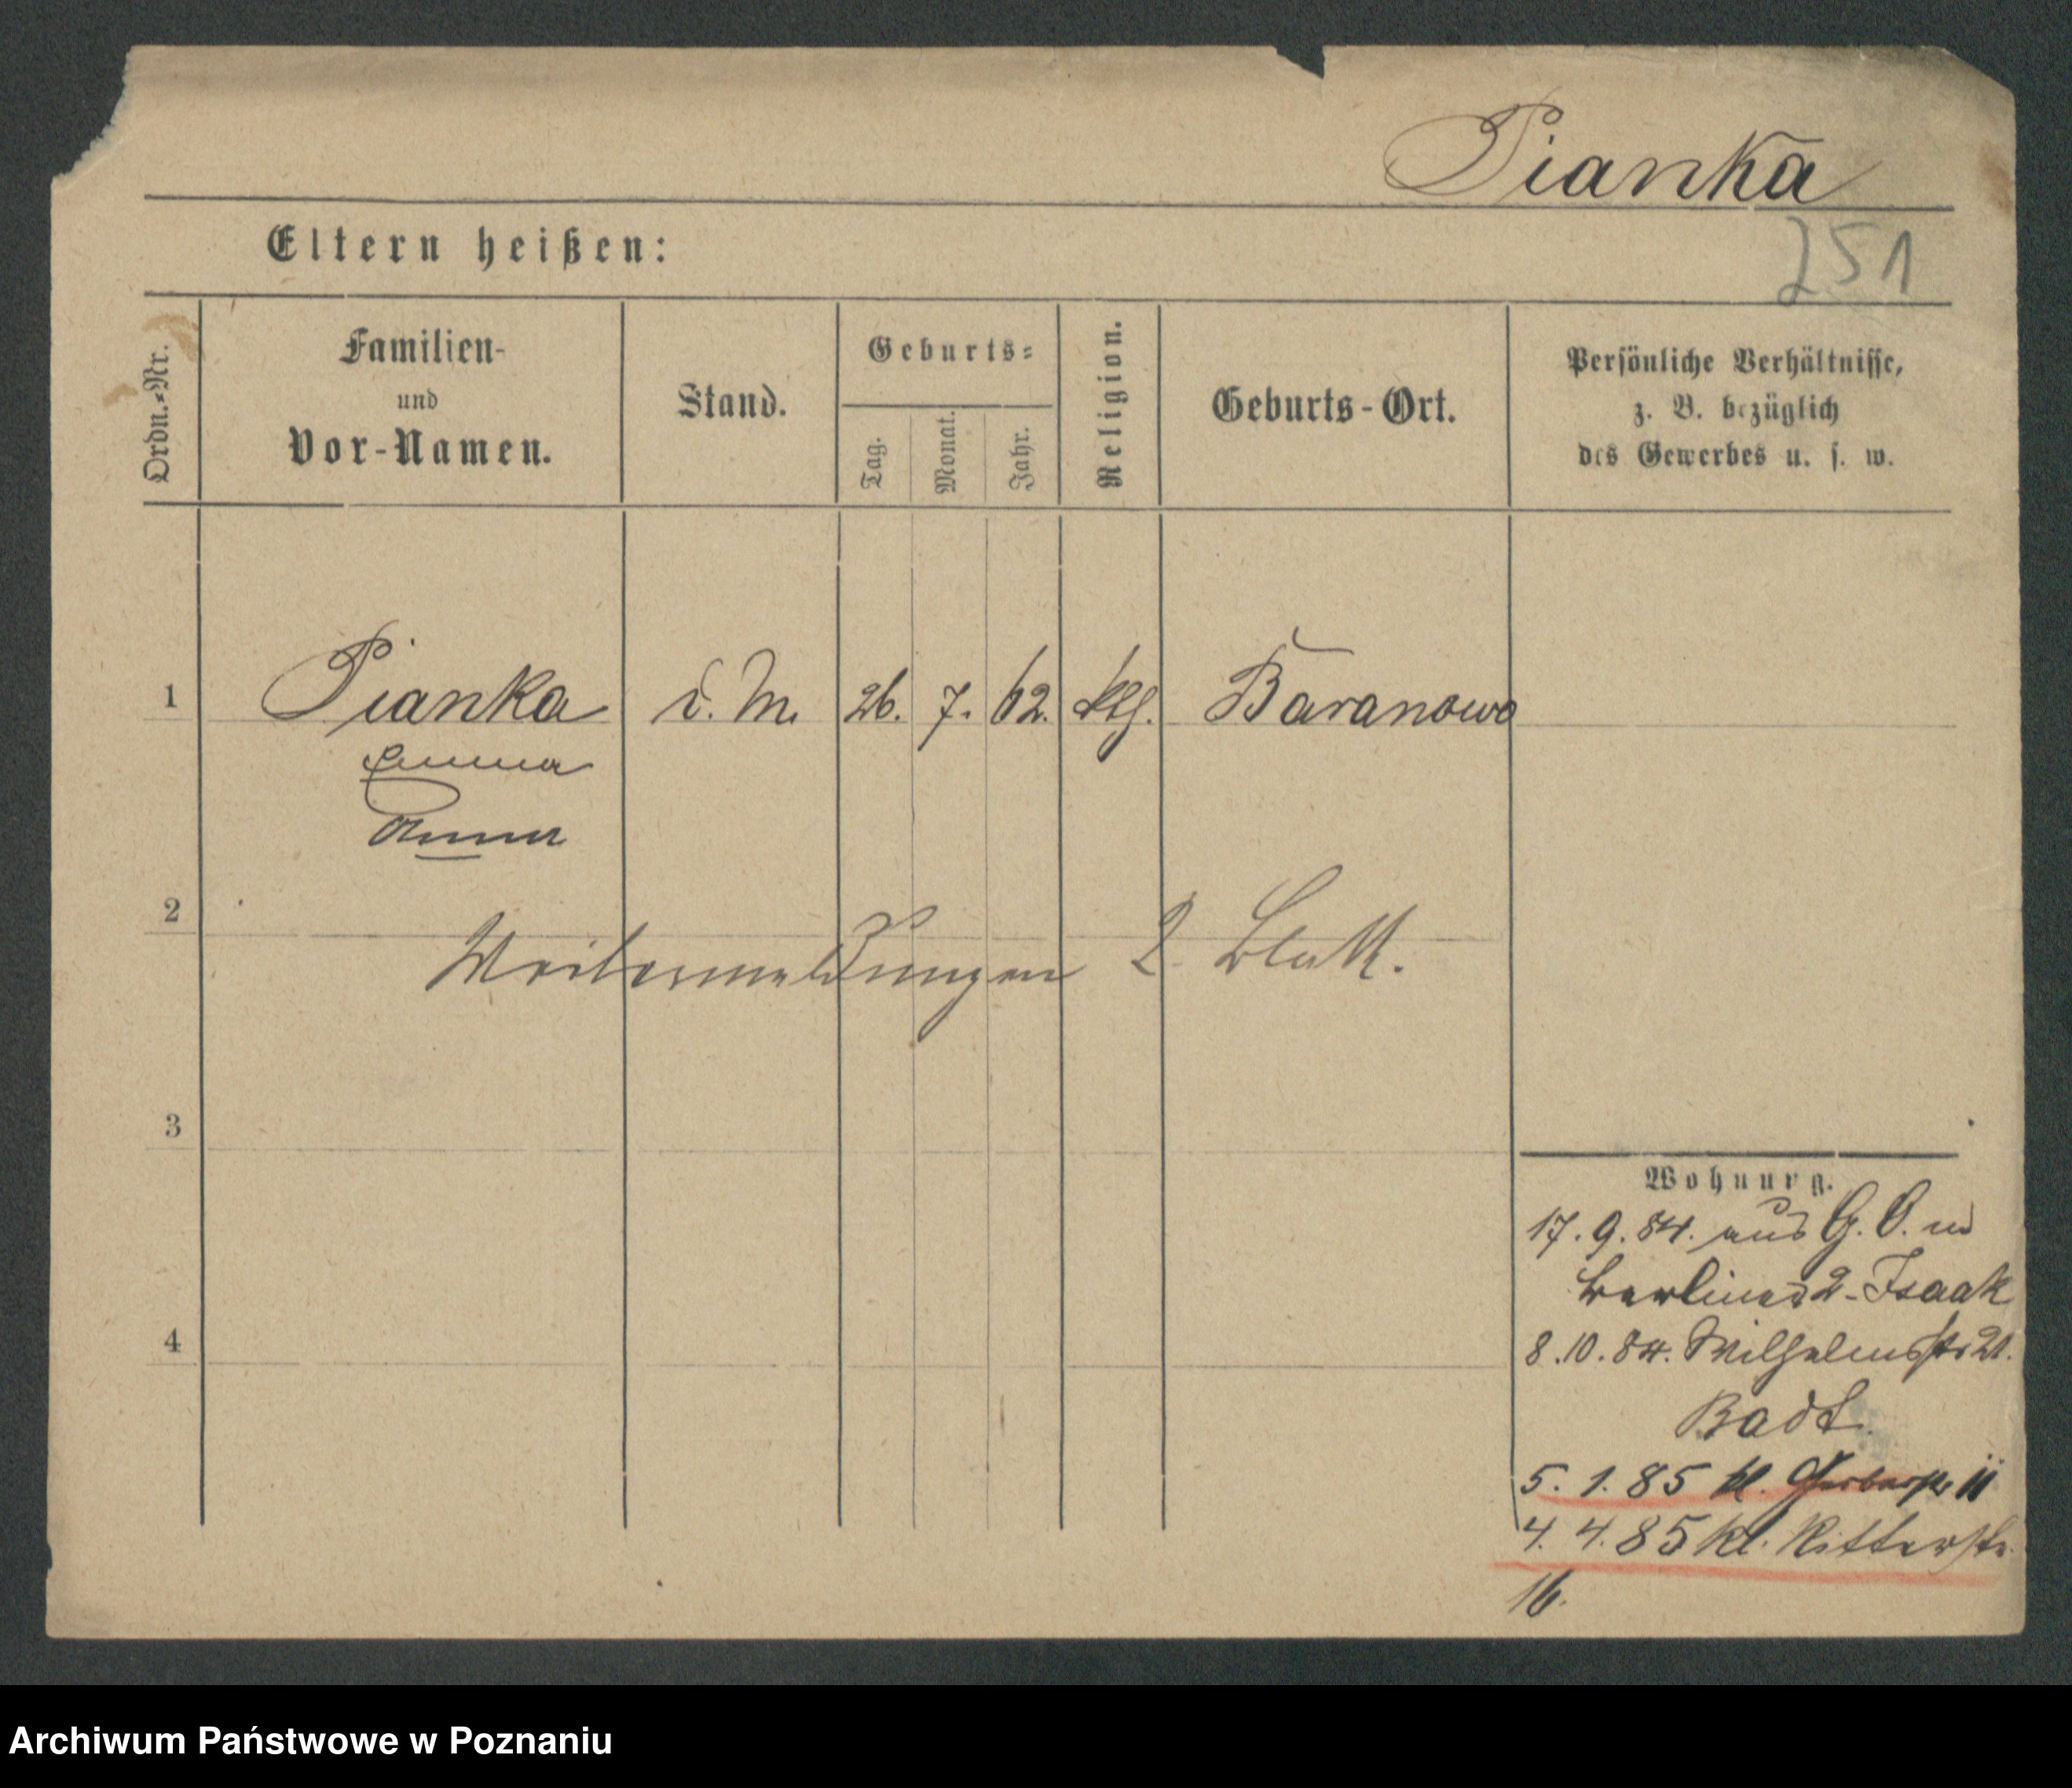 Pianka
251
Eltern heißen:
Ordn.-Nr.
Familien-
und
Vor-Namen.
Stand.
Geburts-
Tag.
Monat.
Jahr.
Religion.
Geburts-Ort.
Persönliche Verhältnisse,
z. B. bezüglich
des Gewerbes u. s. w.
1 Pianka d. M. 26. 7. 62. kth. Baranowo
Emma
Anna
2
Weitermeldungen 2. Blatt.
3
4
Wohnung.
17. 9. 84. aus G. O. in
2 - Isaak
8. 10. 84. Wilhelmsstr 21.
Badt.
5. 1. 85 kl. Gerberstr 11
4. 4. 85 kl. Ritterstr.
16.
Archiwum Państwowe w Poznaniu